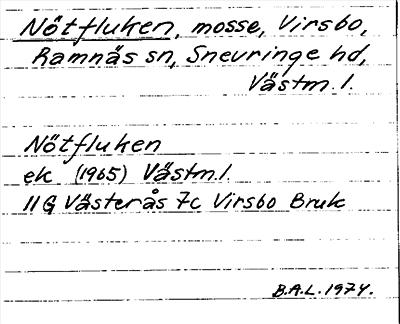 Nötfluken, mosse, Virsbo,
Ramnäs sn, Snevringe hd,
Västm. l.
Nötfluken
ek (1965) Västm.l.
11 G Västerås 7c Virsbo Bruk
B.A.L. 1974.